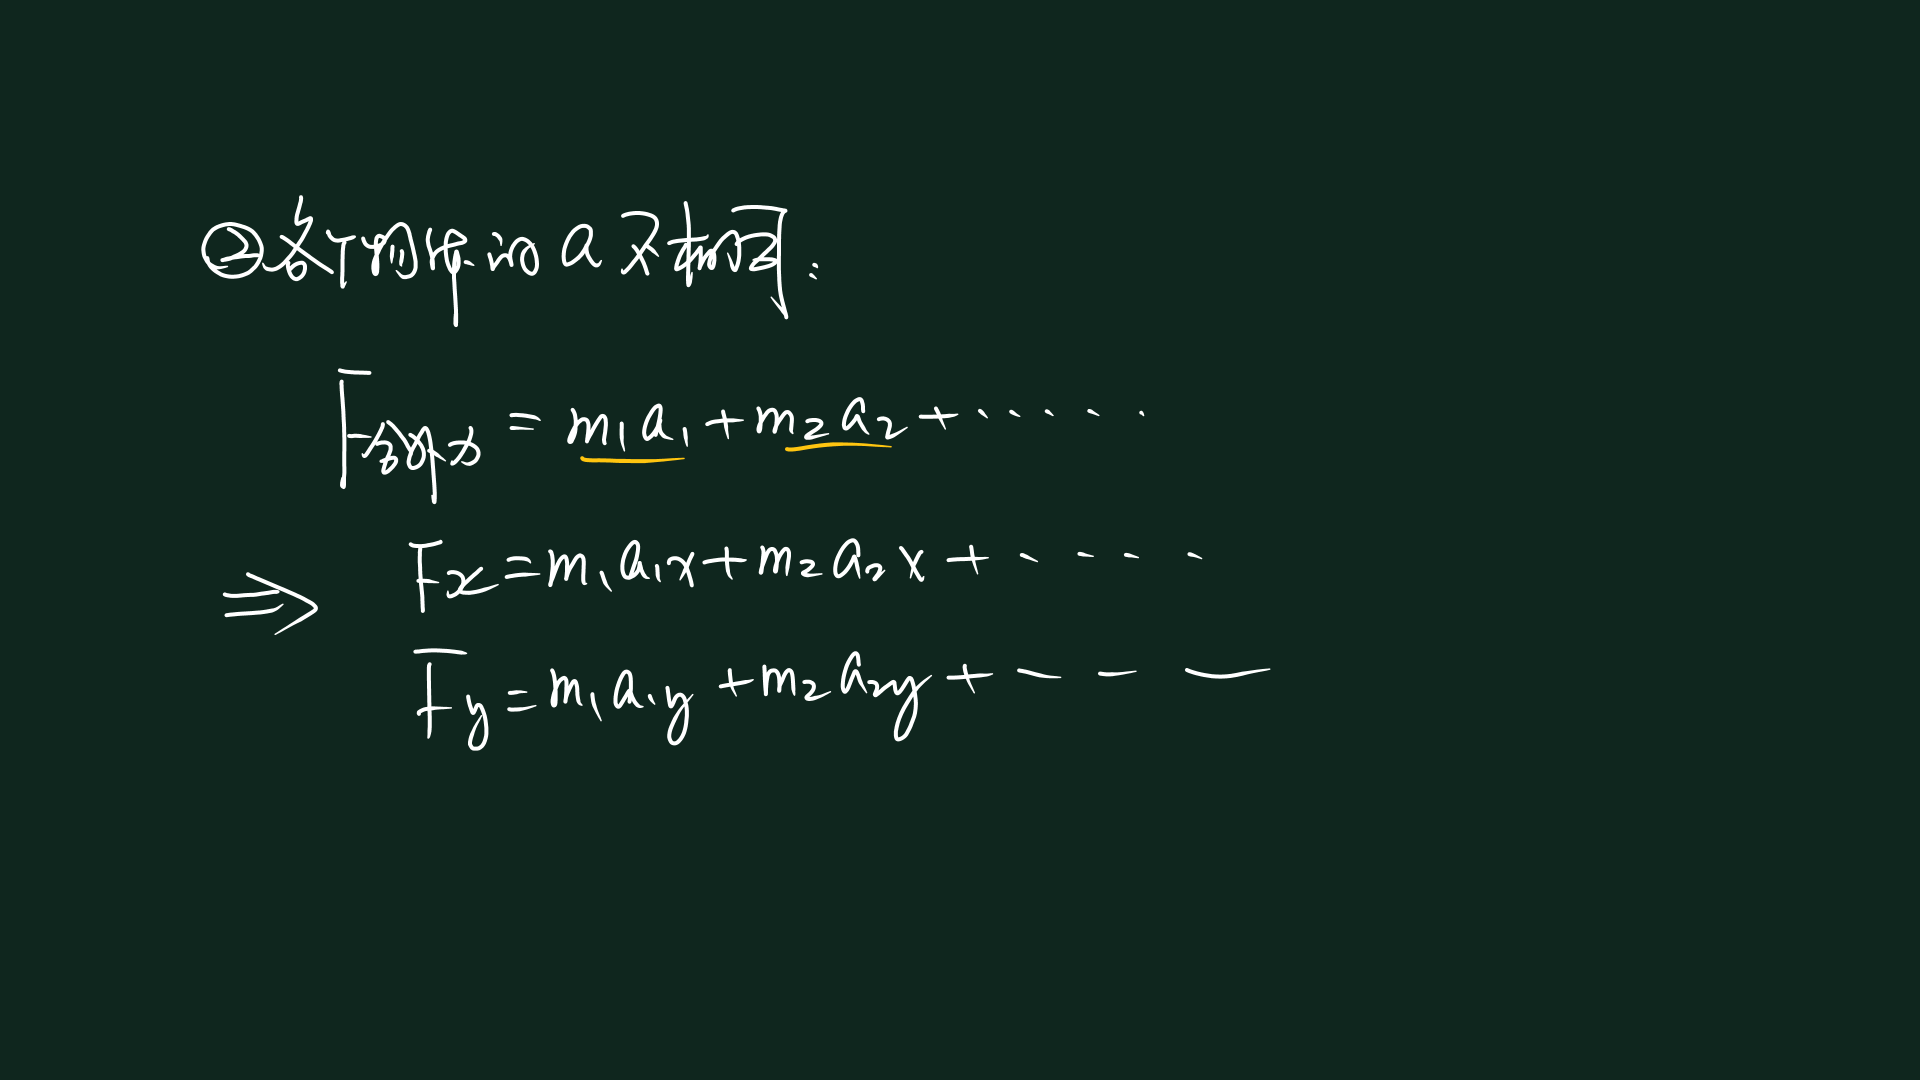 ②各个物体的a不相同:
F合外力=m₁a₁+m₂a₂+·····
⇒ Fx=m₁a₁x+m₂a₂x+····
Fy=m₁a₁y+m₂a₂y+———